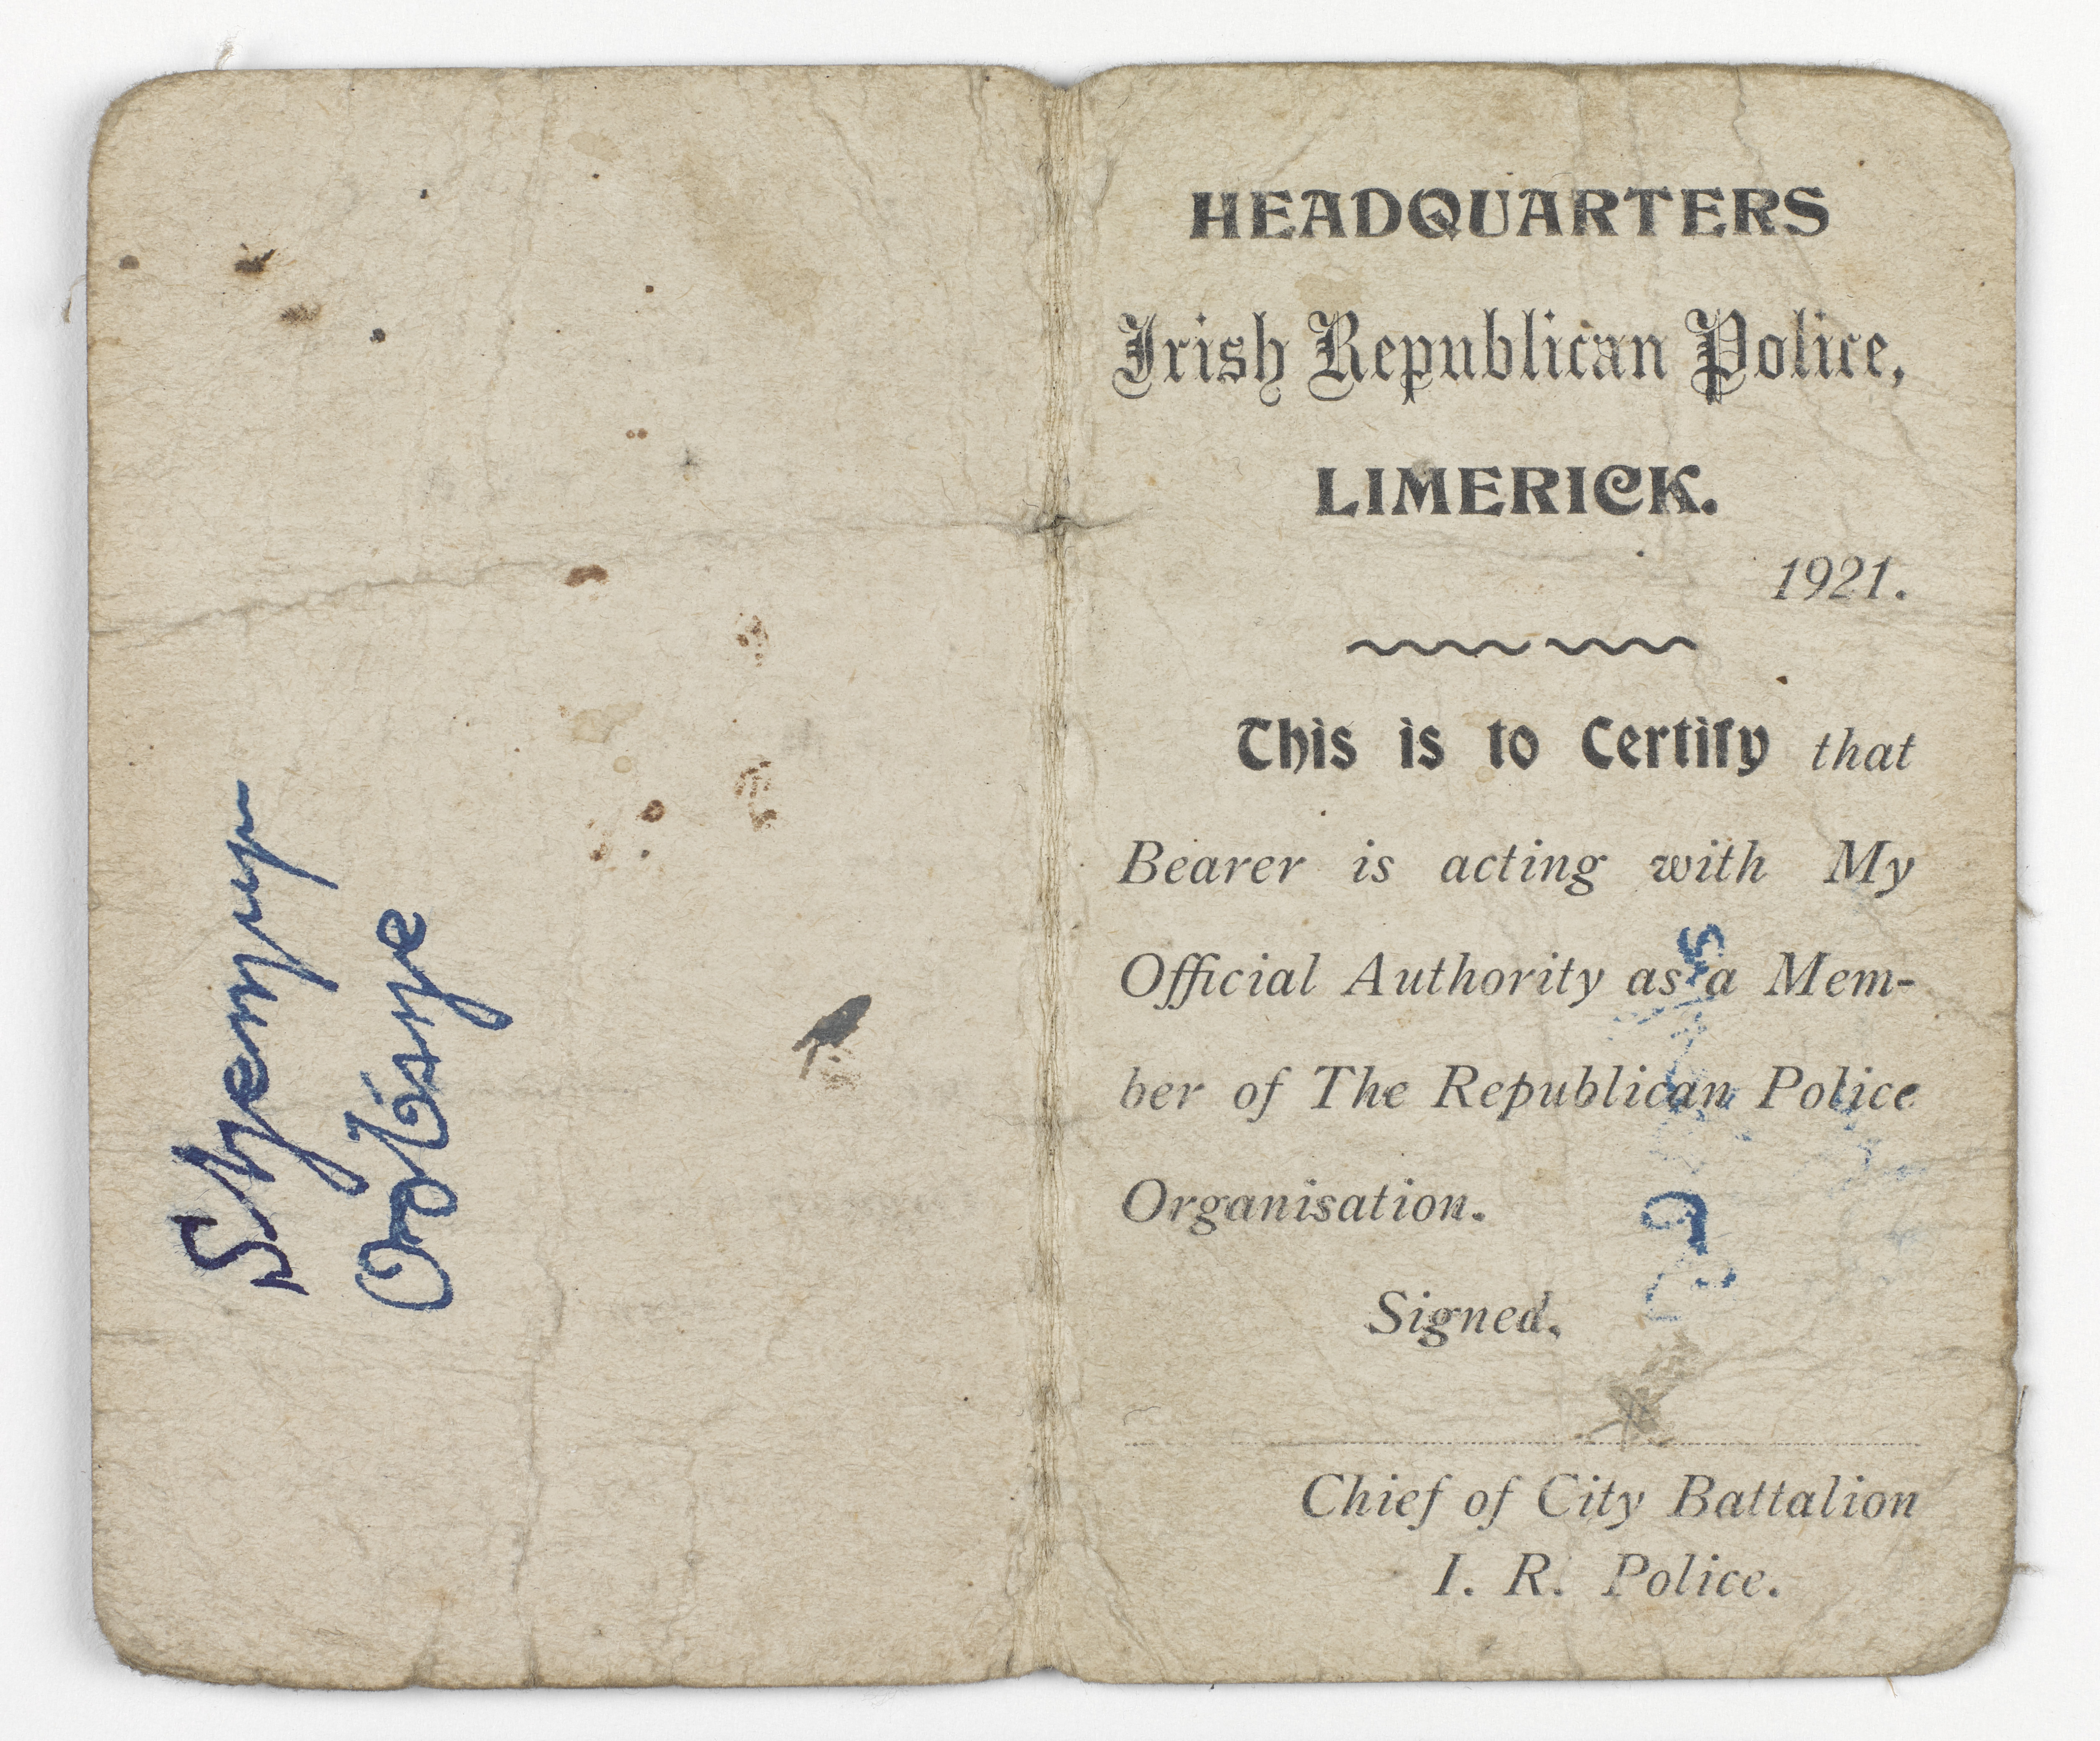 HEADQUARTERS
Irish Republican Police,
LIMERICK.
1921.
This is to Certify that
Bearer is acting with My
Official Authority as a Mem-
ber of The Republican Police
Organisation.
Signed,
Chief of City Battalion
I. R. Police.